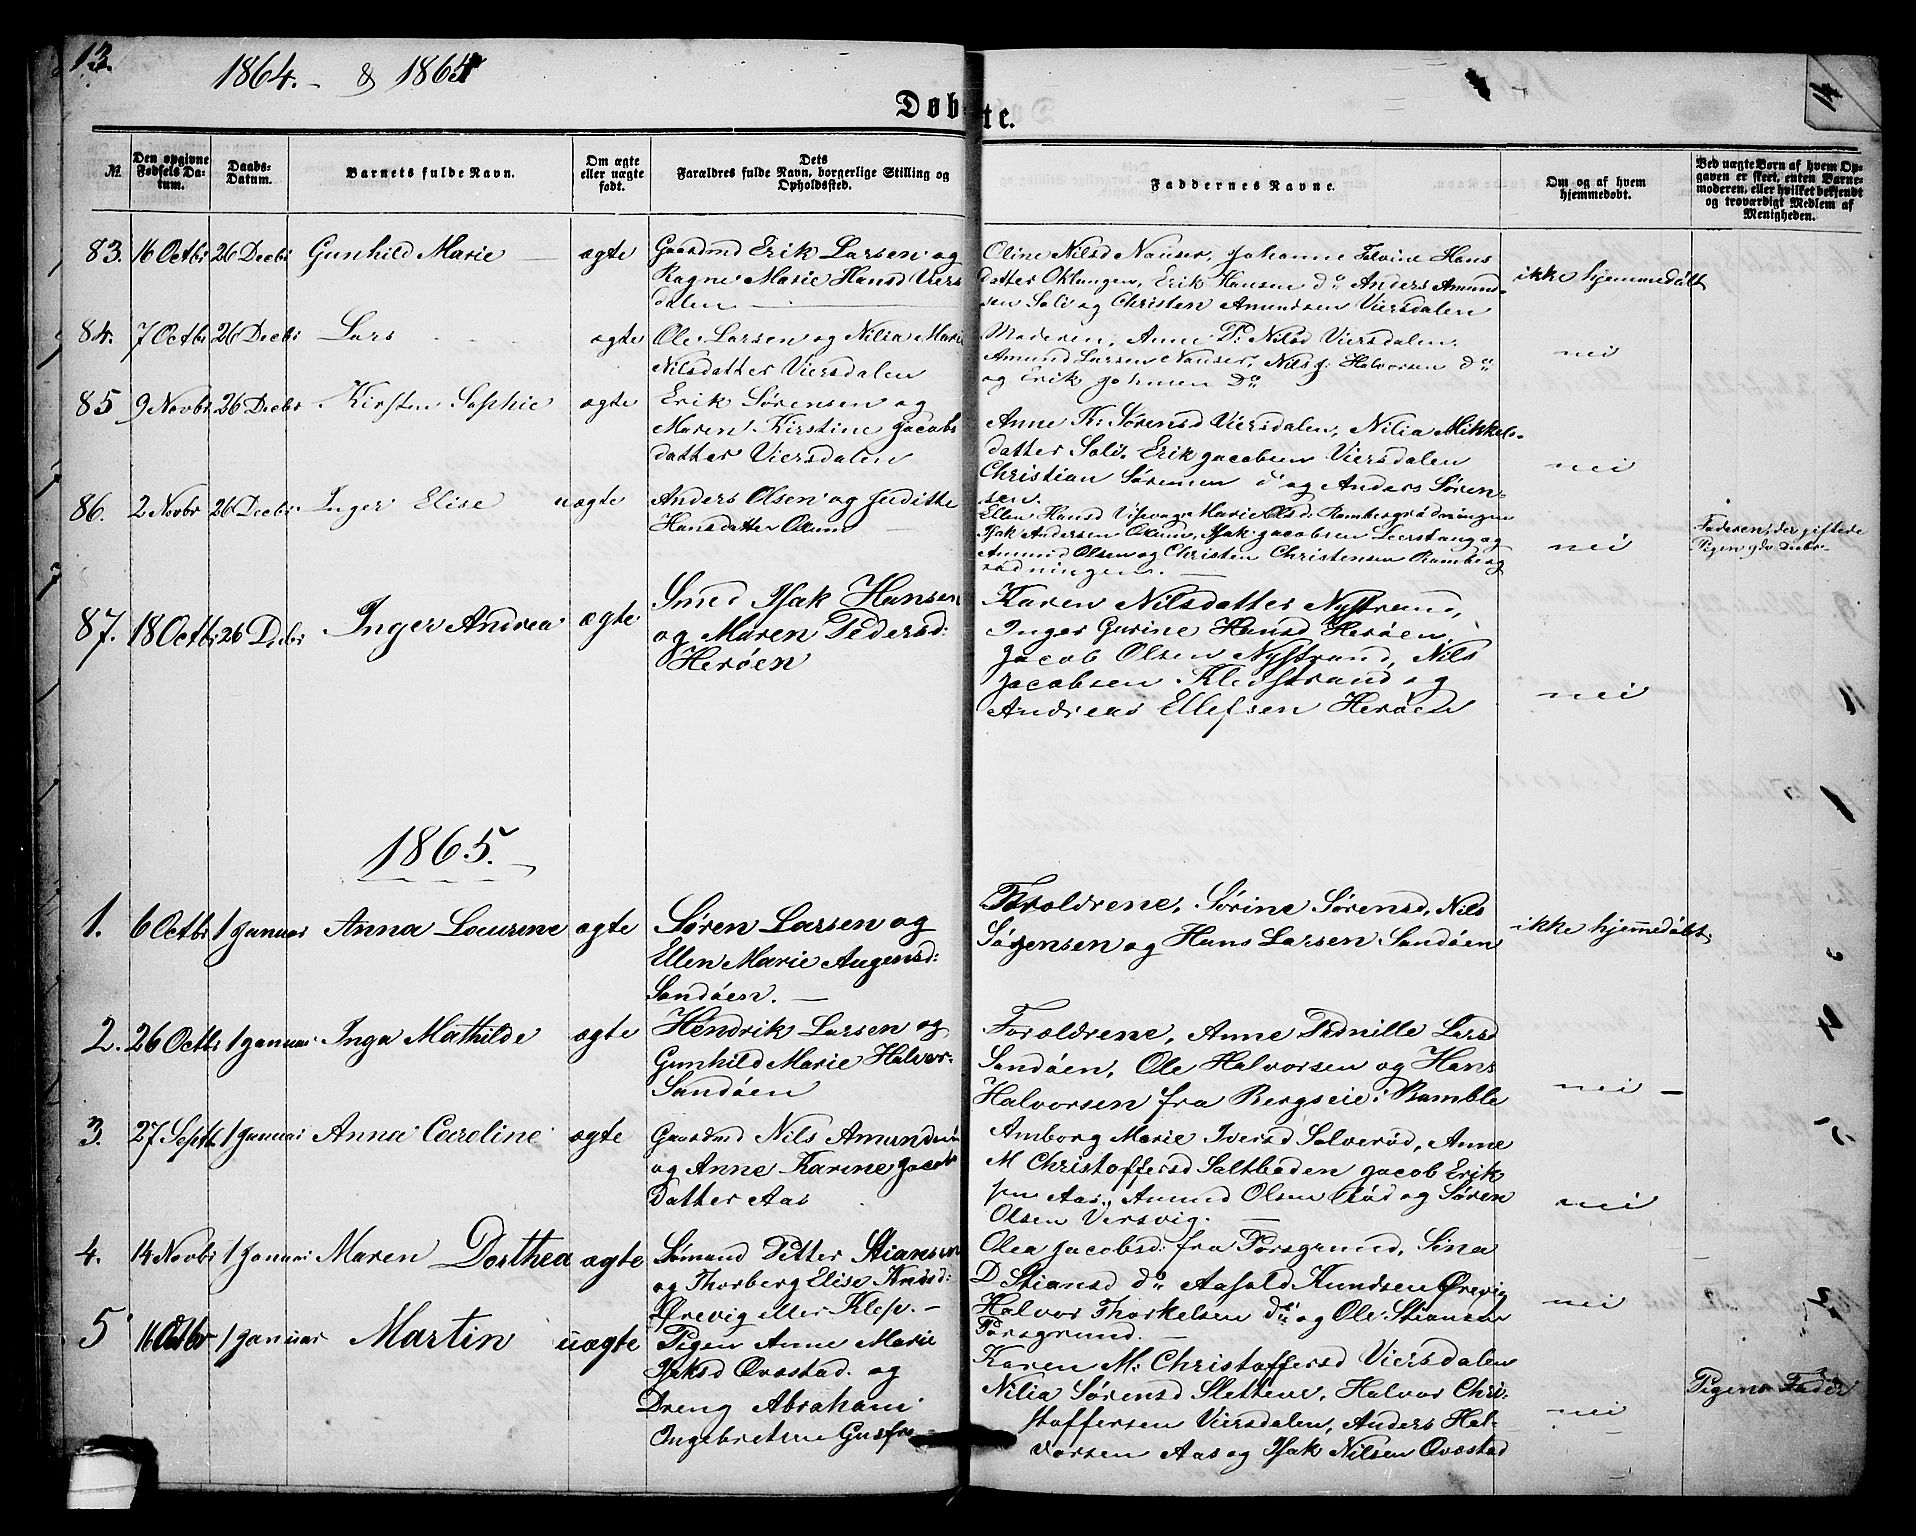 13.
1864. - & 1865
14
Døbte.
№
Den opgivne Fødsels Datum.
Daabs-Datum.
Barnets fulde Navn.
Om ægte eller uægte født.
Dets Forældres fulde Navn, borgerlige Stilling og Opholdssted.
Faddernes Navne.
Om og af hvem hjemmedøbt.
Ved uægte Børn af hvem Opgaven er skeet, enten Barnemoderen, eller hvilket bekjendt og troværdigt Medlem af Menigheden.
83. 16 Octbr 26 Decbr Gunhild Marie — ægte
Gaardmd Erik Larsen og
Ragne Marie Hansd Viers
dalen —
Oline Nilsd Nauser, Johanne Hans
datter Oklungen, Erik Hansen do Anders Amund-
sen Soli og Christen Amundsen Viersdalen
ikke hjemmedøbt
84. 7 Octbr 26 Decbr Lars ægte
Ole Larsen og Nilia Marie
Nilsdatter Viersdalen
Moderen, Anne P: Nilsd Viersdalen.
Amund Larsen Nauser, Nils J: Halvorsen do
og Erik Johnsen do
nei
85 9 Novbr 26 Decbr Kirsten Sophie ægte
Erik Sørensen og
Maren Kirstine Jacobs
datter Viersdalen
Anne K: Sørensd Viersdalen, Nilia Mikkels-
datter Soli, Erik Jacobsen Viersdalen
Christian Sørensen do og Anders Søren-
sen.
nei
86. 2 Novbr 26 Decbr. Inger Elise uægte
Anders Olsen og Juditte
Hansdatter Ørum —
Ellen Hansd Marie Olsd:
Isak Andersen Isak Jacobsen Leerstang og
Amund Olsen og Christen Christensen Ramberg
rødningen. —
nei
Faderen, der giftede
Pigen Decbr
87. 18 Octbr 26 Decbr Inger Andrea ægte
Smed Isak Hansen
og Maren Pedersd:
Herøen
Karen Nilsdatter Nystrand,
Inger Gurine Hansd Herøen,
Jacob Olsen Nystrand, Nils
Jacobsen Klevstrand og
Andreas Ellefsen Herøen
nei
1865.
1. 6 Octbr 1 Januar Anna Laurine ægte
Søren Larsen og
Ellen Marie Augensd:
Sandøen. —
Forældrene, Sørine Sørensd, Nils
Sørensen og Hans Larsen Sandøen
ikke hjemmedøbt
2. 26 Octbr 1 Januar Inga Mathilde ægte
Hendrik Larsen og
Gunhild Marie Halvor-
Sandøen
Forældrene, Anne Pernille Larsd
Sandøen, Ole Halvorsen og Hans
Halvorsen fra Bergseie i Bamble
nei —
3. 27 Septb 1 Januar Anna Caroline ægte
Gaardmd Nils Amundsen
og Anne Karine Jacobs
datter Aas
Amborg Marie Iversd Salverød, Anne
M Christoffersd Saltboden Jacob Erik
sen Aas, Amund Olsen Rød og Søren
Olsen Versvig. —
nei
4. 14 Novbr 1 Januar Maren Dorthea ægte
Sømand Petter Stiansen
og Thorberg Elise Knudsd:
Ørevig eller Klep. —
Olea Jacobsd: fra Porsgrund, Sina
D Stiansd do Aasold Knudsen Ørevig
Halvor Thorkelsen do og Ole Stiansen
Porsgrund. —
nei
5 16 Octbr 1 Januar Martin uægte
Pigen Anne Marie
Isaksd Øvrestad. og
Dreng Abraham
Ingebretsen
Karen M: Christoffersd Viersdalen
Nilia Sørensd Sletten, Halvor Chri-
stoffersen Viersdalen, Anders Hal-
vorsen Aas og Isak Nilsen Øvrestad
nei
Pigens Fader